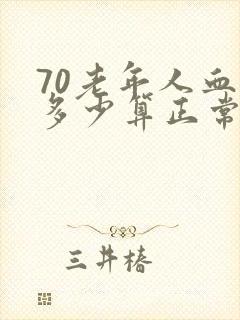 70老年人血
多少算正常
三井椿